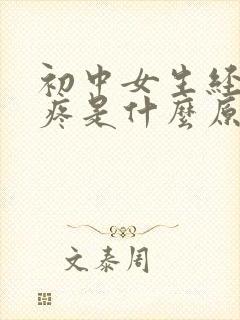 初中女生経
疼是什麼原
文泰周